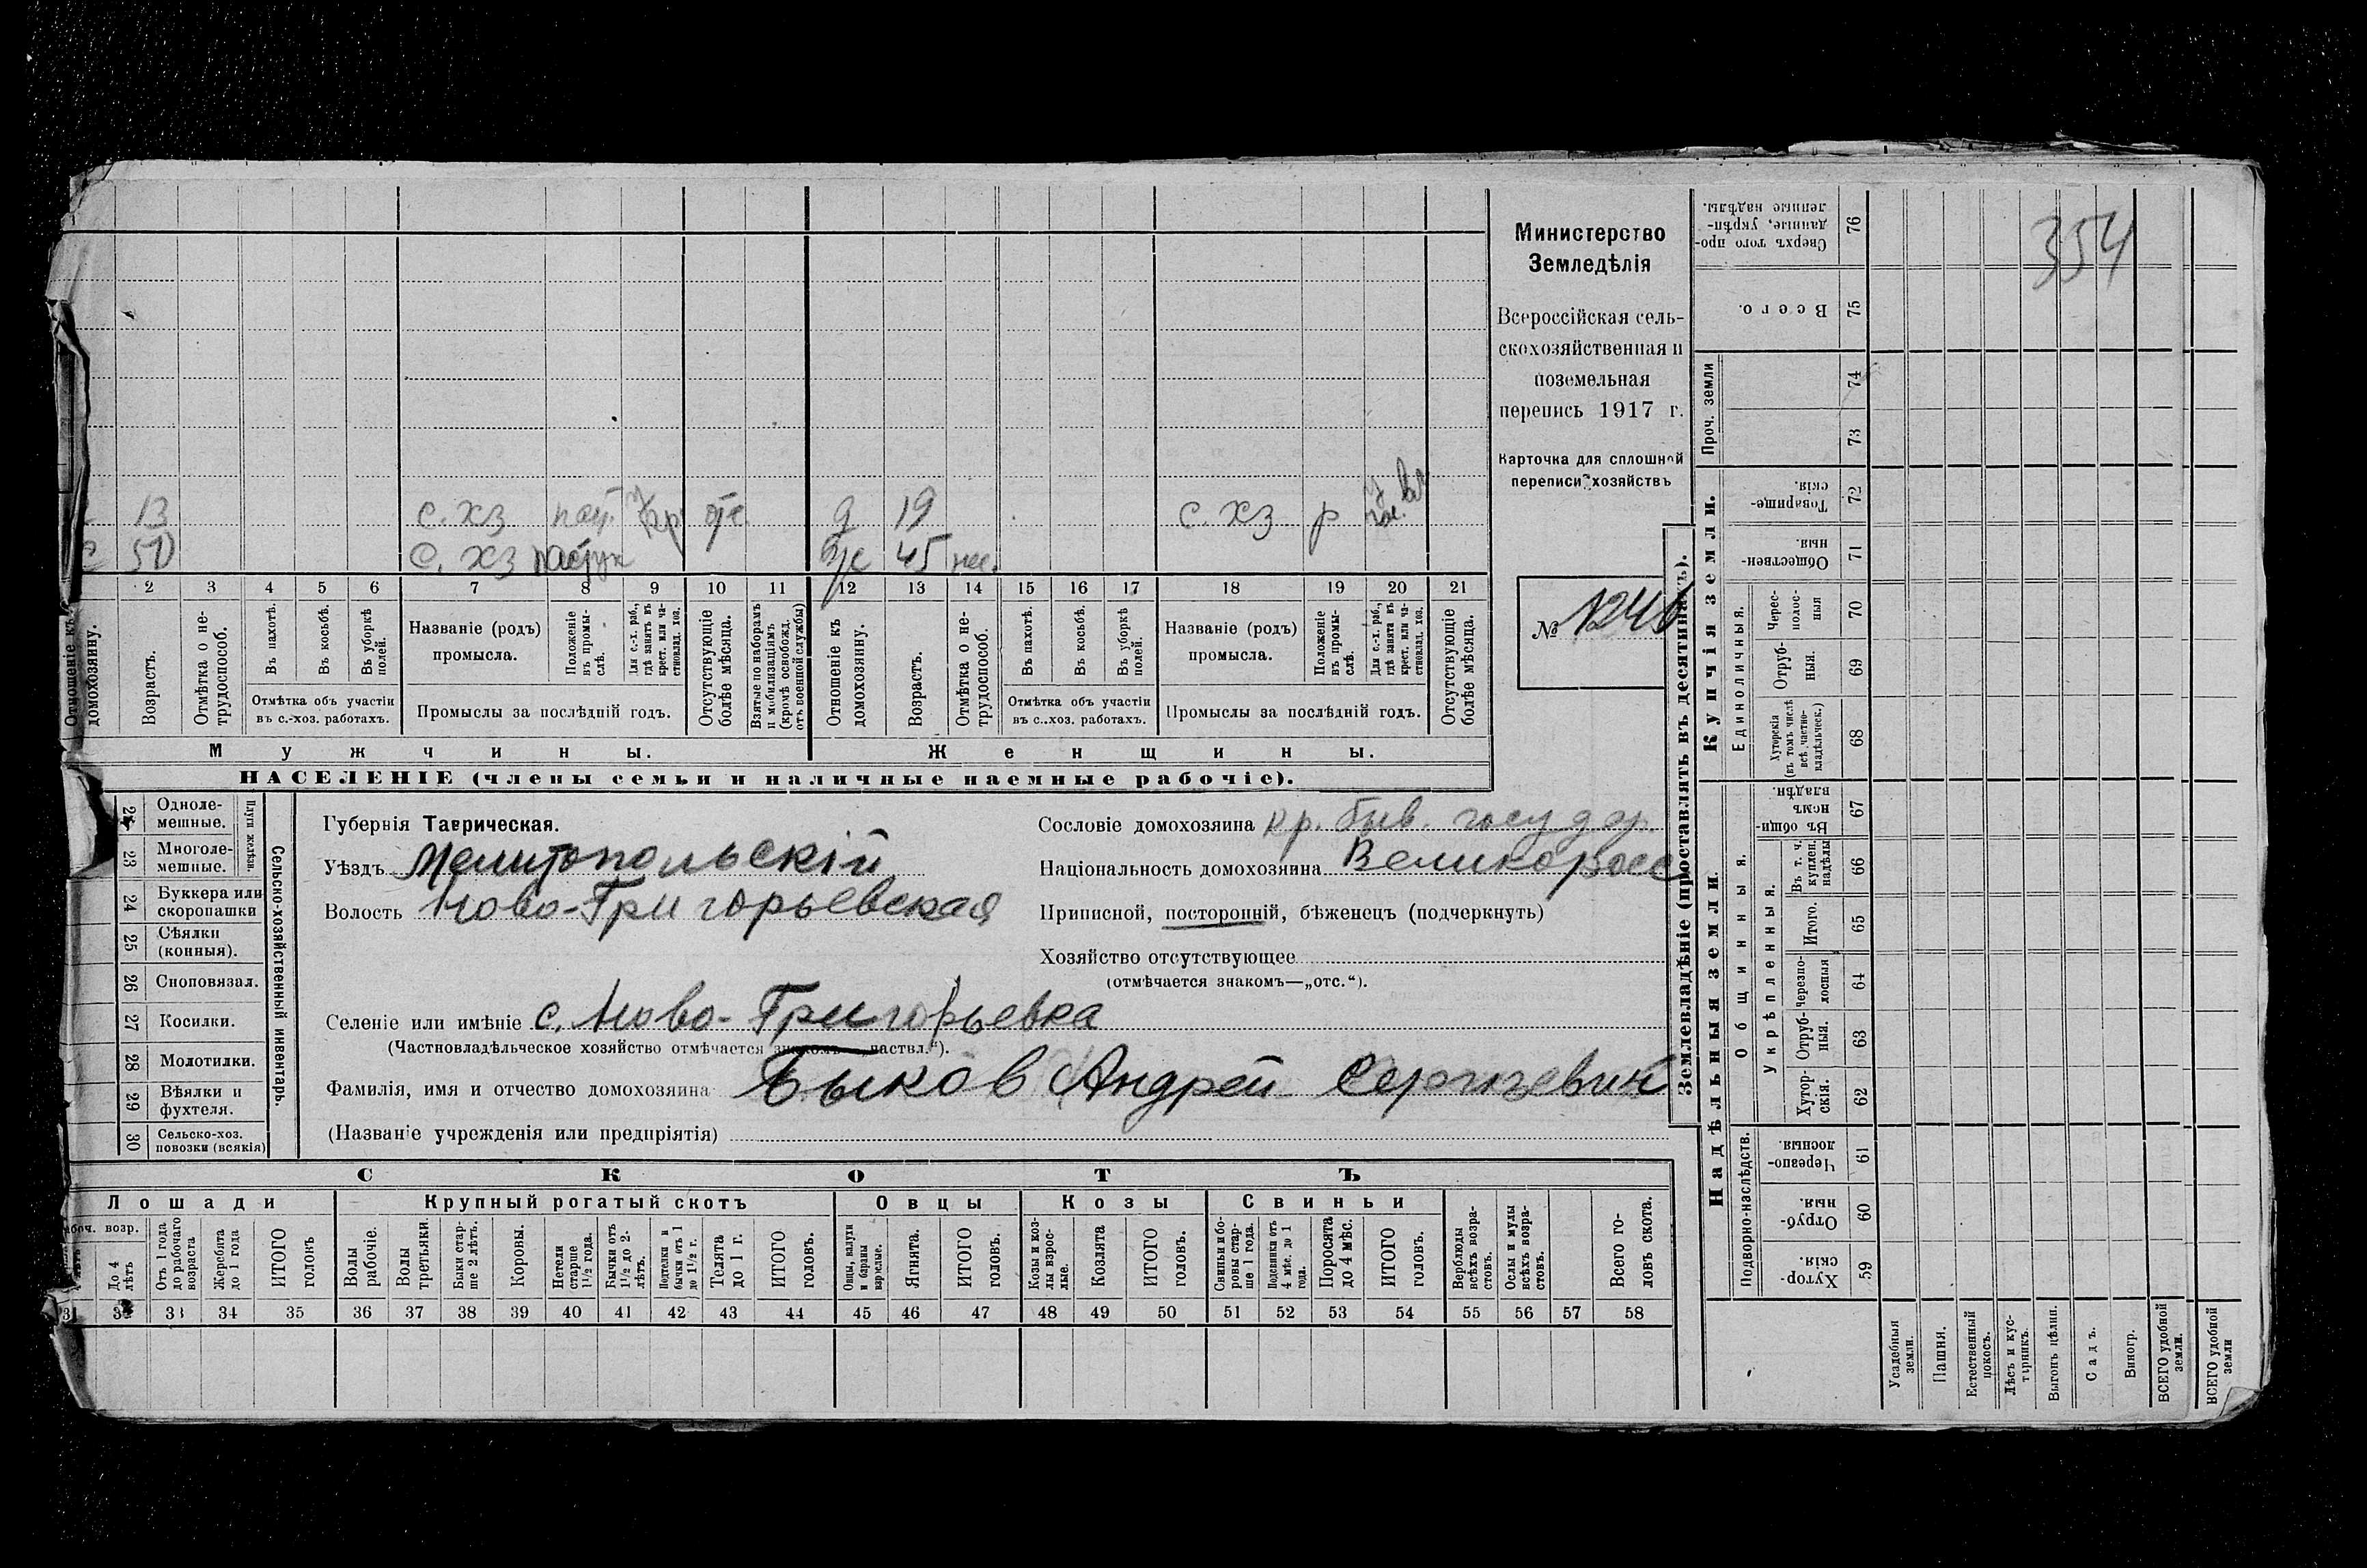 354
Министерство
Земледѣлія
Всероссійская сель-
скохозяйственная и
поземельная
перепись 1917 г.
Карточка для сплошной
переписи хозяйствъ
№ 1246
13 с. хз отс. д 19 с. хз р
50 с. хз пастух ж 45
2 3 4 5 6 7 8 9 10 11 12 13 14 15 16 17 18 19 20 21
Отношеніе къ домохозяину.
Возрастъ.
Отмѣтка о не-трудоспособ.
Въ пахотѣ.
Въ косьбѣ.
Въ уборкѣ полей.
Отмѣтка объ участіи
въ с.-хоз. работахъ.
Названіе (родъ)
промысла.
Положеніе въ промы-слѣ.
Для с.-х. раб., гдѣ занятъ въ крест. или ча-стновлад. хоз.
Промыслы за послѣдній годъ.
Отсутствующіе болѣе мѣсяца.
Взятые по наборамъ и мобилизаціямъ (кромѣ освобожд. отъ военной службы)
Отношеніе къ домохозяину.
Возрастъ.
Отмѣтка о не-трудоспособ.
Въ пахотѣ.
Въ косьбѣ.
Въ уборкѣ полей.
Отмѣтка объ участіи
въ с.-хоз. работахъ.
Названіе (родъ)
промысла.
Положеніе въ промы-слѣ.
Для с.-х. раб., гдѣ занята въ крест. или ча-стновлад. хоз.
Промыслы за послѣдній годъ.
Отсутствующіе болѣе мѣсяца.
Мужчины.
Женщины.
НАСЕЛЕНІЕ (члены семьи и наличные наемные рабочіе).
Сельско-хозяйственный инвентарь.
Плуги желѣзн.
22 Одноле-мешные.
23 Многоле-мешные.
24 Буккера или скоропашки
25 Сѣялки (конныя).
26 Сноповязал.
27 Косилки.
28 Молотилки.
29 Вѣялки и фухтеля.
30 Сельско-хоз. повозки (всякія)
Губернія Таврическая.
Уѣздъ Мелитопольскій
Волость Ново-Григорьевская
Сословіе домохозяина кр. быв. государ.
Національность домохозяина Великоросс
Приписной, посторонній, бѣженецъ (подчеркнуть)
Хозяйство отсутствующее
(отмѣчается знакомъ—„отс.“).
Селеніе или имѣніе с. Ново-Григорьевка
(Частновладѣльческое хозяйство отмѣчается знакомъ частвл.“).
Фамилія, имя и отчество домохозяина Быков Андрей Сергѣевич
(Названіе учрежденія или предпріятія)
СКОТЪ
Лошади
Крупный рогатый скотъ
Овцы
Козы
Свиньи
возр.
До 4 лѣтъ
Отъ 1 года до рабочаго возраста
Жеребята до 1 года
ИТОГО головъ
Волы рабочіе.
Волы третьяки.
Быки стар-ше 2 лѣтъ.
Коровы.
Нетели старше 1½ года.
Бычки отъ 1½ до 2-лѣтъ.
Подтелки и бычки отъ 1 до 1½ г.
Телята до 1 г.
ИТОГО головъ.
Овцы, валухи и бараны взрослые.
Ягнята.
ИТОГО головъ.
Козы и коз-лы взрос-лые.
Козлята
ИТОГО головъ.
Свиньи и бо-ровы стар-ше 1 года.
Подсвинки отъ 4 мѣс. до 1 года.
Поросята до 4 мѣс.
ИТОГО головъ.
Верблюды всѣхъ возра-стовъ.
Ослы и мулы всѣхъ возра-стовъ.
Всего го-ловъ скота.
31 32 33 34 35 36 37 38 39 40 41 42 43 44 45 46 47 48 49 50 51 52 53 54 55 56 57 58
Землевладѣніе (проставлять въ десятинахъ).
Купчія земли.
Проч. земли
Единоличныя.
76 Сверхъ того про-данные, укрѣп-ленные надѣлы.
75 Всего.
74
73
72 Товарище-скія.
71 Обществен-ныя.
70 Черес-полос-ныя
69 Отруб-ныя.
68 Хуторскія (въ томъ числѣ всѣ частно-владѣльческ.)
Надѣльныя земли.
Общинныя.
Укрѣпленныя.
67 Въ общи-номъ владѣн.
66 Въ т. ч. куплен. надѣлы
65 Итого.
64 Черезпо-лосныя
63 Отруб-ныя.
62 Хутор-скія.
Подворно-наслѣдств.
61 Черезпо-лосныя.
60 Отруб-ныя.
59 Хутор-скія.
Усадебныя земли.
Пашня.
Естественный покосъ.
Лѣсъ и кус-тарникъ.
Выгонъ цѣлин.
Садъ.
Виногр.
ВСЕГО удобной земли.
ВСЕГО удобной земли